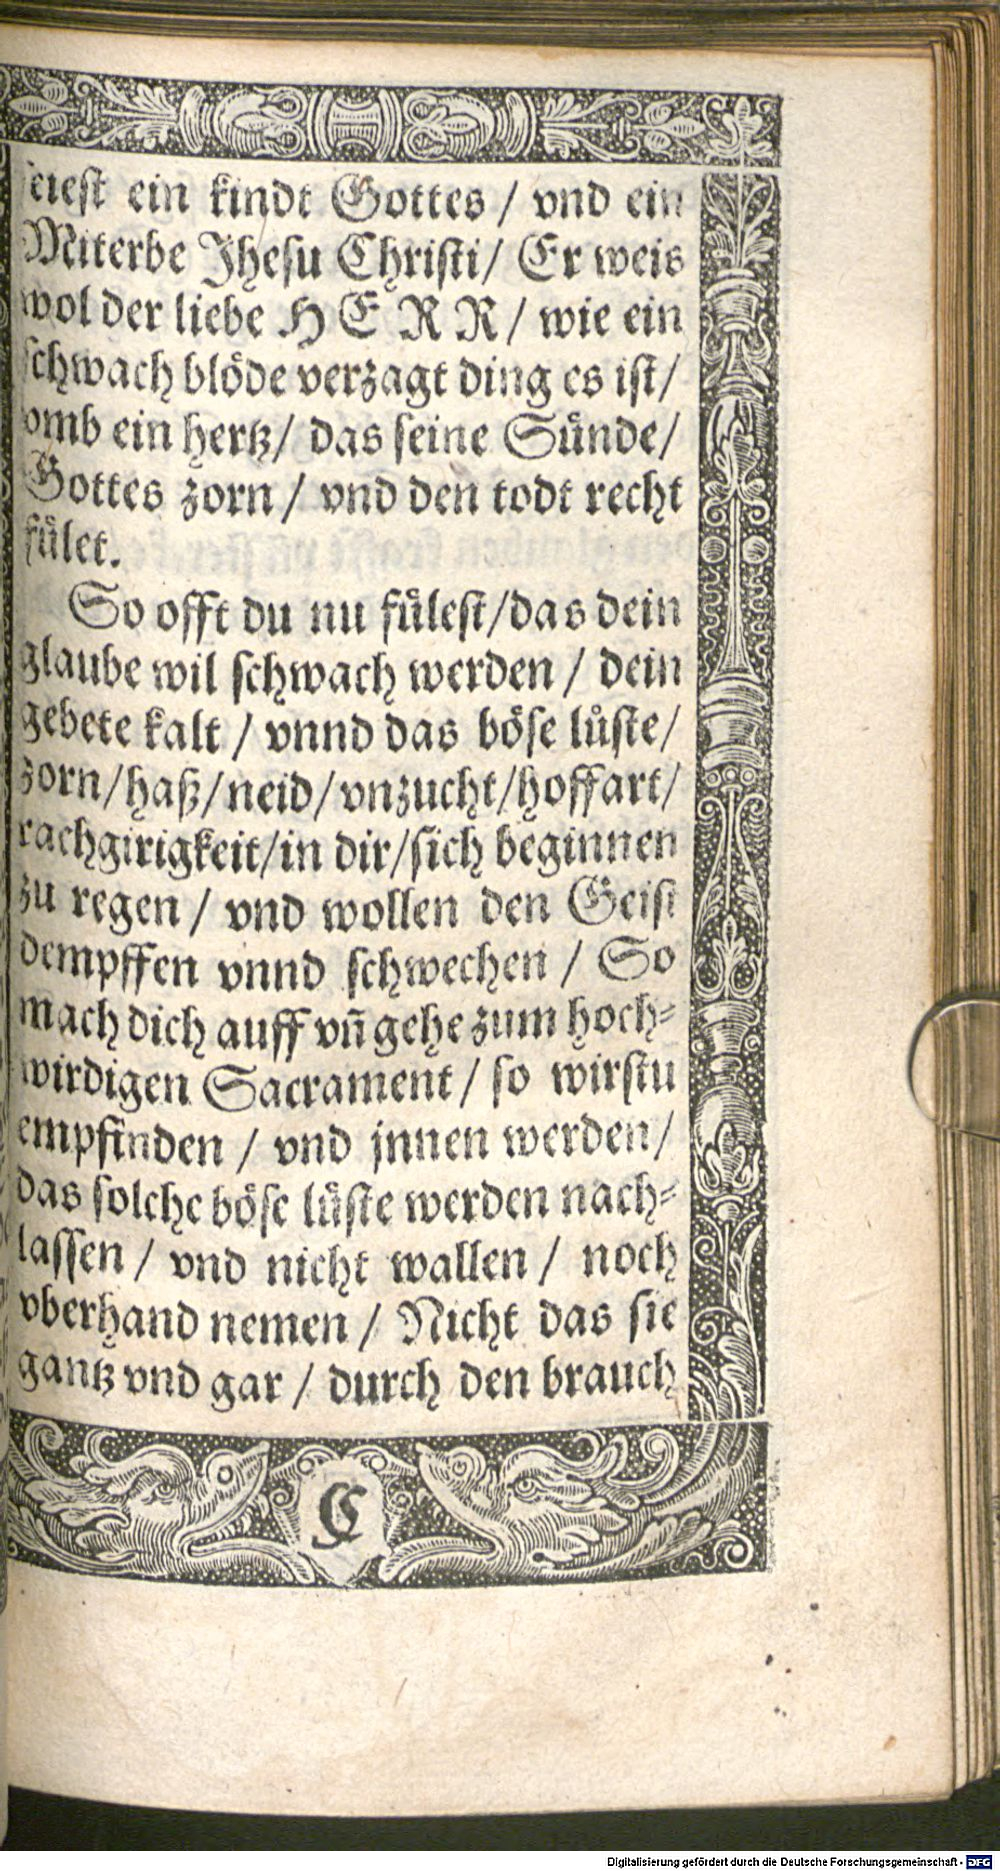 seiest ein kindt Gottes / vnd ein
Miterbe Jhesu Christi / Er weis
wol der liebe HERR / wie ein
schwach blöde verzagt ding es ist /
vmb ein hertz / das seine Sünde /
Gottes zorn / vnd den todt recht
fület.
So offt du nu fülest / das dein
glaube wil schwach werden / dein
gebete kalt / vnnd das böse lüste /
zorn / haß / neid / vnzucht / hoffart /
rachgirigkeit / in dir / sich beginnen
zu regen / vnd wollen den Geist
dempffen vnnd schwechen / So
mach dich auff vñ gehe zum hoch⸗
wirdigen Sacrament / so wirstu
empfinden / vnd jnnen werden /
das solche böse lüste werden nach⸗
lassen / vnd nicht wallen / noch
vberhand nemen / Nicht das sie
gantz vnd gar / durch den brauch
C
Digitalisierung gefördert durch die Deutsche Forschungsgemeinschaft - DFG